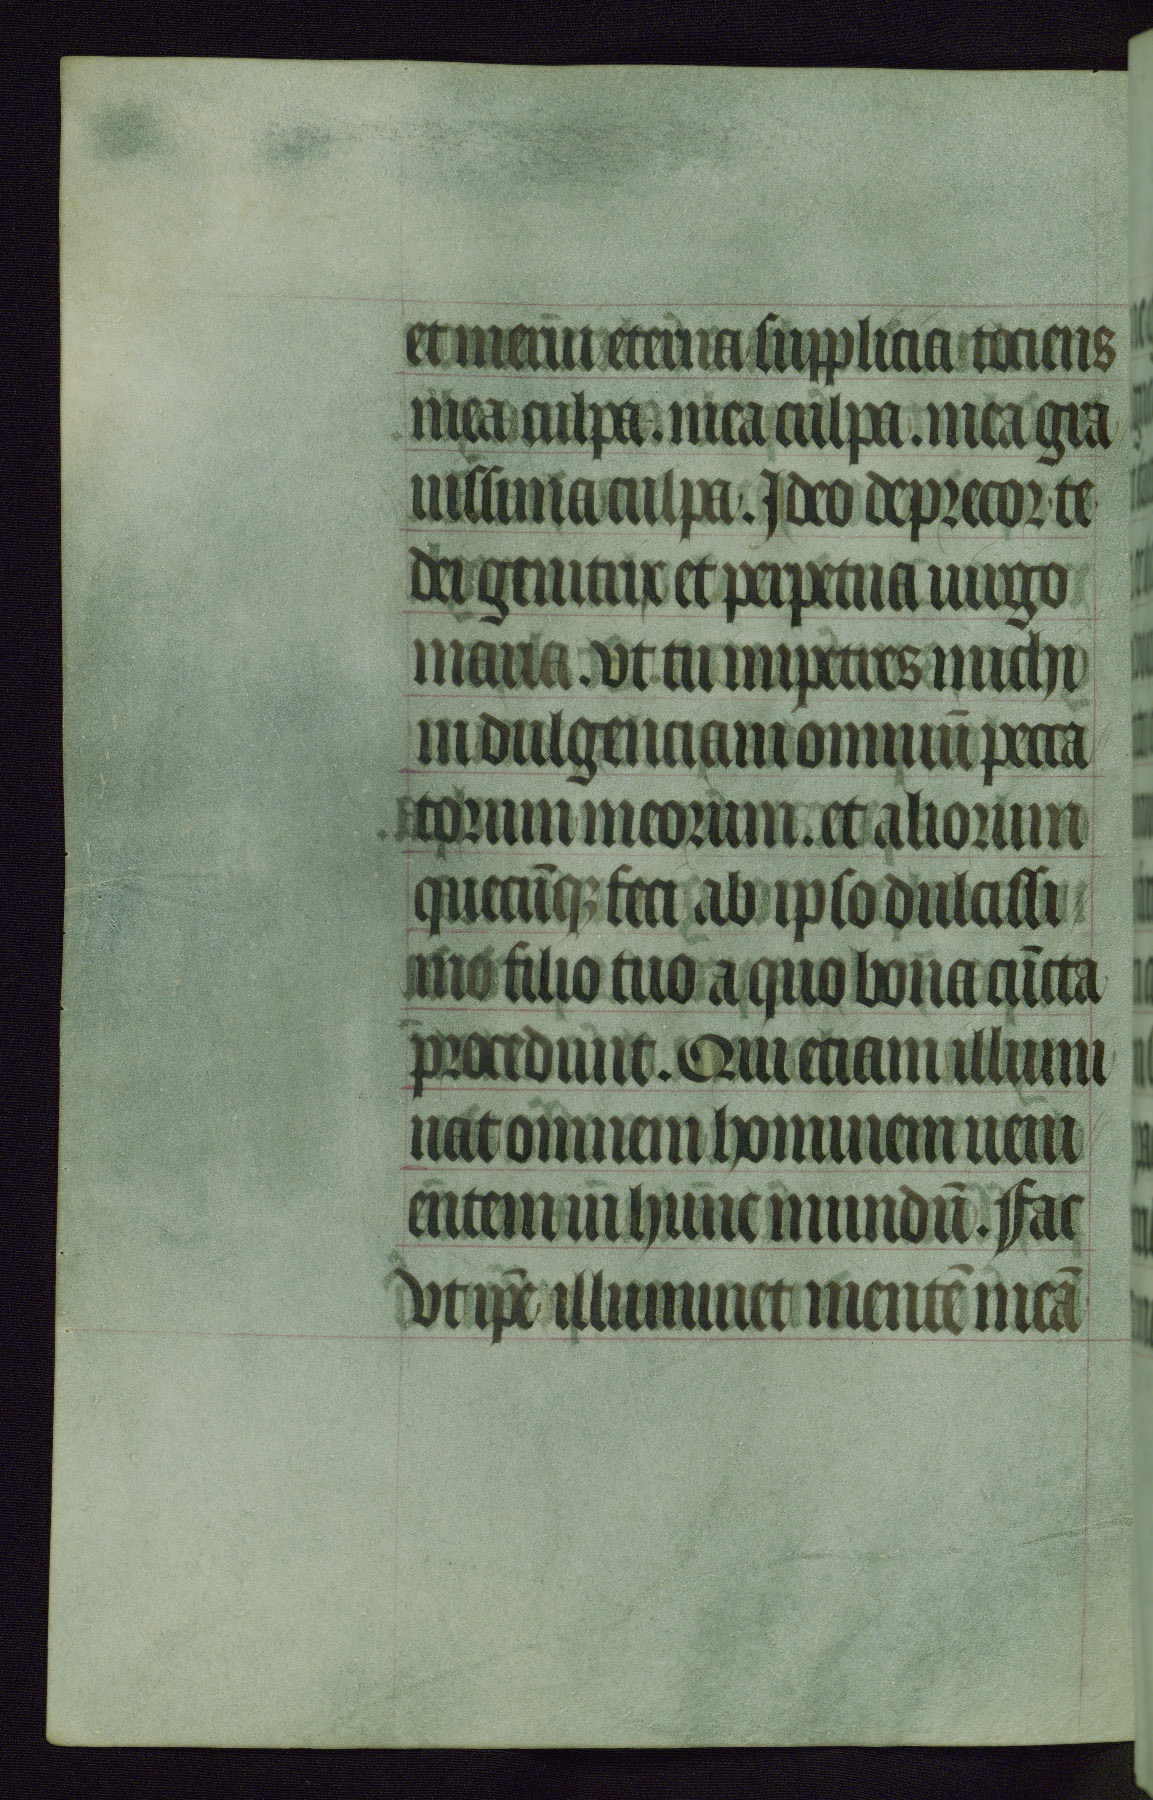 et merui eterna supplicia tociens
mea culpa. mea culpa. mea gra
uissima culpa. Ideo deprecor te
dei genitrix et perpetua uirgo
maria. vt tu impetres michi
indulgenciam omniū pecca
torum meorum. et aliorum
quecūqꝫ feci ab ipso dulcissi
mo filio tuo a quo bona cūcta
procedunt. Qui etiam illumi
nat omnem hominem ueni
entem in hunc mundū. Fac
vt ip̄e illuminet mentē meā